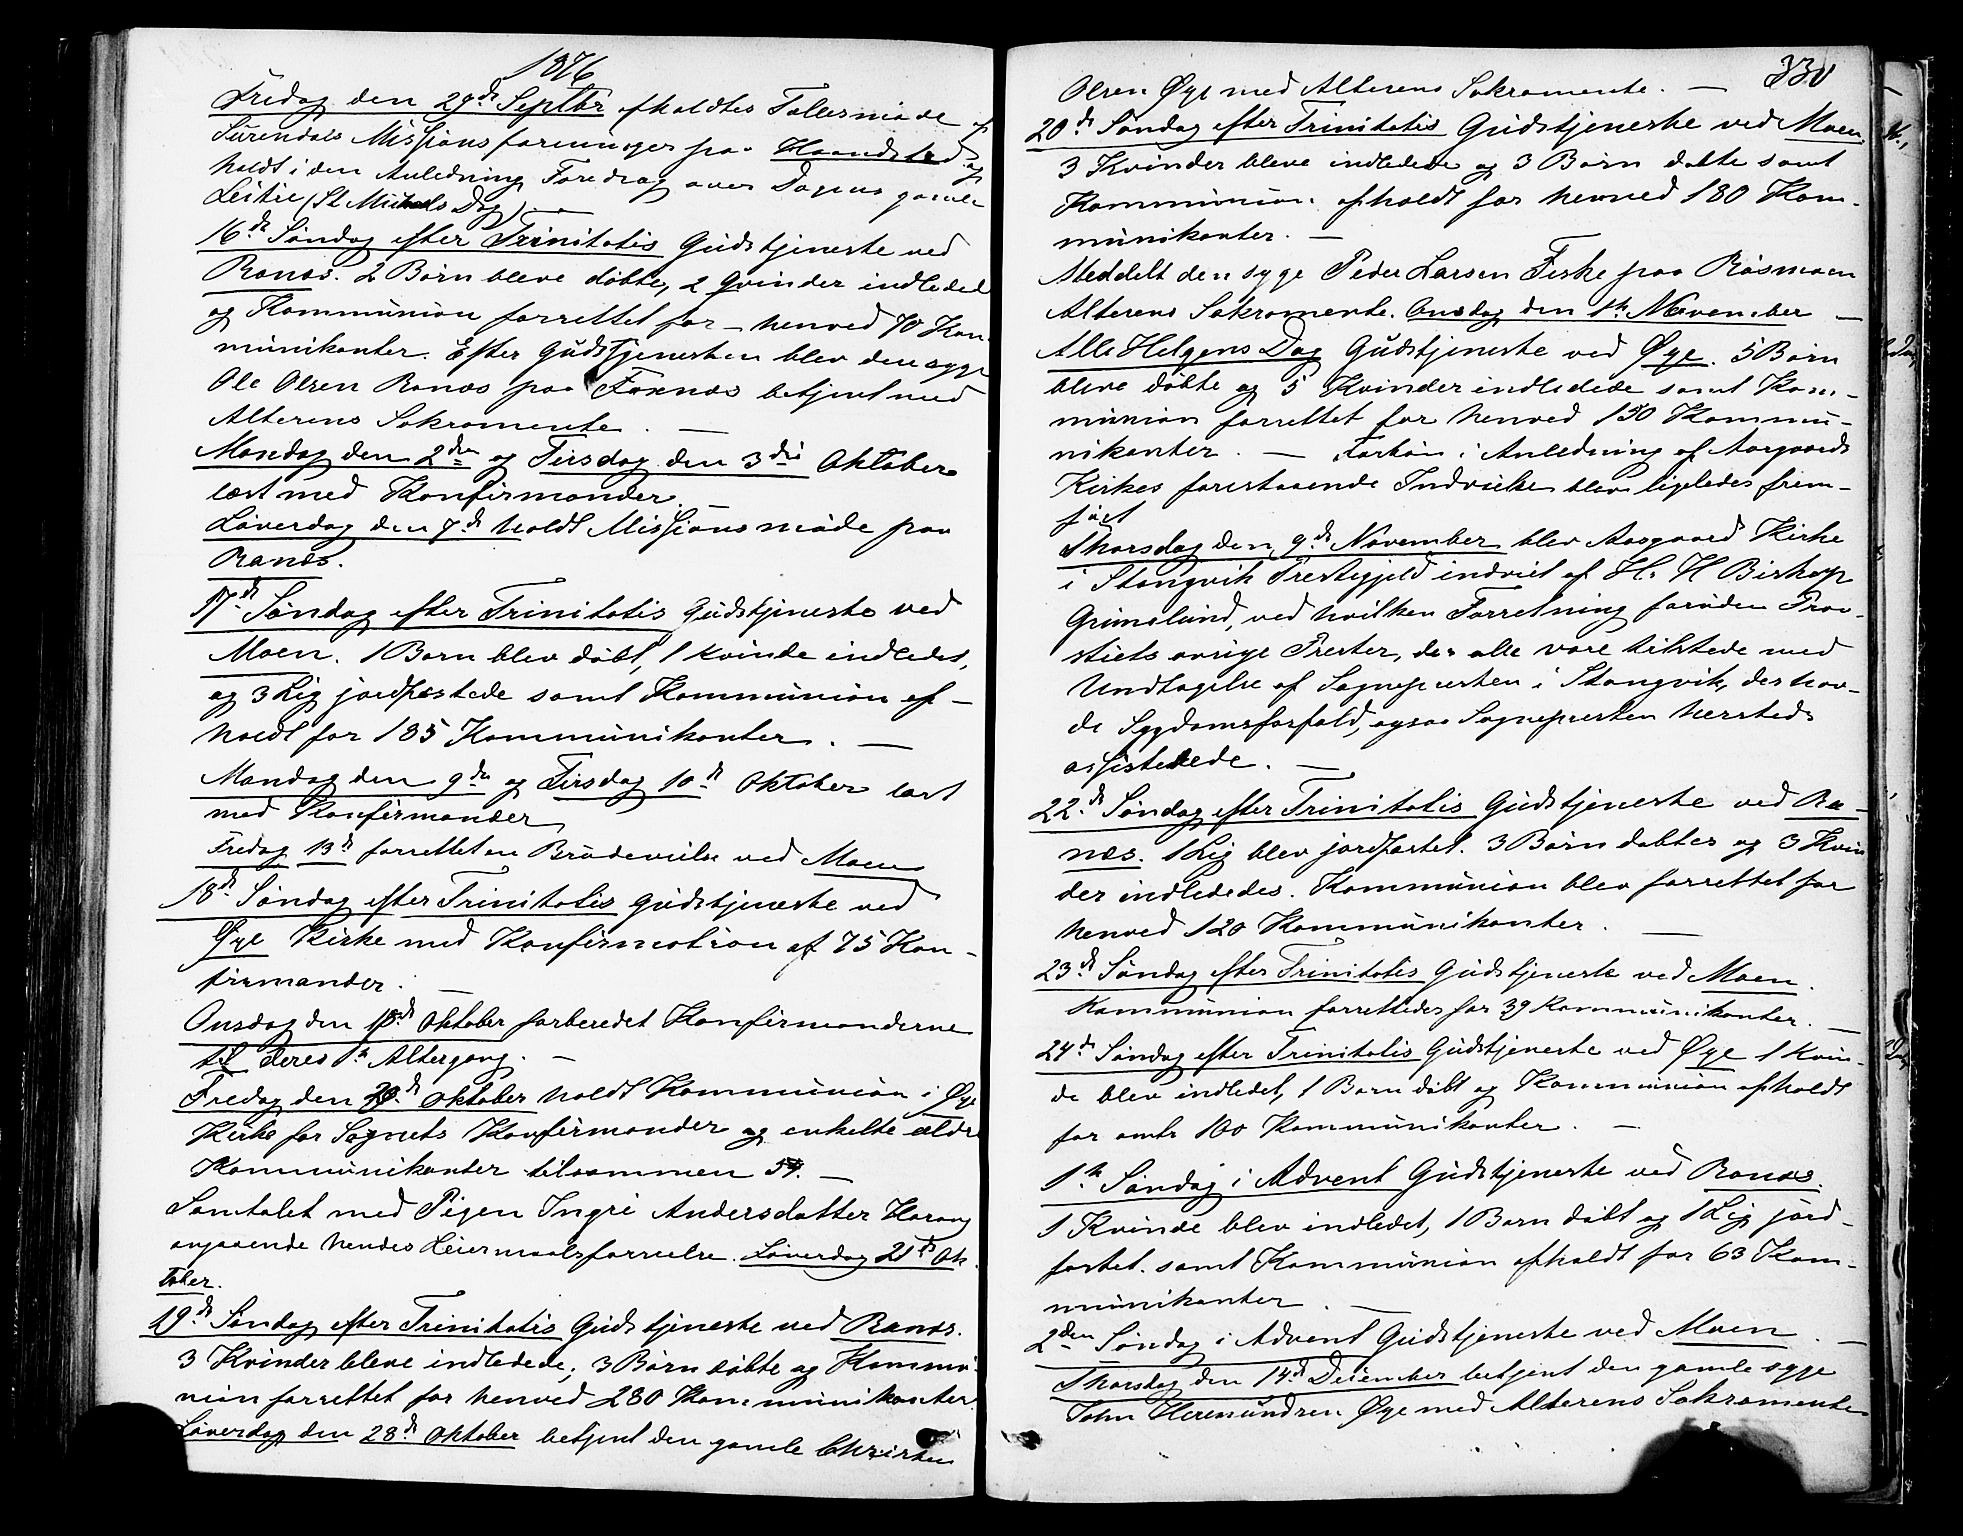 1876
Fredag den 29de Septbr afholdtes Fællesmøde af
Surendals Missionsforeninger paa Haandstad og
holdt i den Anledning Foredrag over Dagens gamle
Lektie (St Michaels Dag). —
16de Søndag efter Trinitatis Gudstjeneste ved
Ranæs. 2 Børn bleve døbte, 2 Qvinder indledet
og Kommunion forrettet for — henved 70 Kom
munikanter. Efter Gudstjenesten blev den syge
Ole Olsen Ranæs paa betjent med
Alterens Sakramente. —
Mandag den 2den og Tirsdag den 3die Oktober
læst med Konfirmander. —
Løverdag den 7de holdt Missionsmøde paa
Ranæs.
17de Søndag efter Trinitatis Gudstjeneste ved
Moen. 1 Barn blev døbt, 1 Kvinde indledet,
og 3 Lig jordfæstede samt Kommunion af-
holdt for 135 Kommunikanter. —
Mandag den 9de og Tirsdag 10de Oktober læst
med Konfirmander
Fredag 13de forrettet en Brudevielse ved Moen
18de Søndag efter Trinitatis Gudstjeneste ved
Øye Kirke med Konfirmation af 75 Kon-
firmander. —
Onsdag den 18de Oktober forberedet Konfirmanderne
til deres 1te Altergang. —
Fredag den 20de Oktober holdt Kommunion i Øye
Kirke for Sognets Konfirmander og enkelte ældre
Kommunikanter tilsammen 59. —
Samtalet med Pigen Ingri Andersdatter Harang
angaaende hendes Leiermaalsforseelse. Løverdag 21de Ok
tober.
19de Søndag efter Trinitatis Gudstjeneste ved Ranæs.
3 Kvinder bleve indledede, 3 Børn døbte og Kommu-
nion forrettet for henved 280 Kommunikanter.
Løverdag den 28de Oktober betjent den gamle Christen
330
Olsen Øye med Alterens Sakramente. —
20de Søndag efter Trinitatis Gudstjeneste ved Moen
3 Kvinder bleve indledede og 3 Børn døbte samt
Kommunion afholdt for henved 180 Kom-
munikanter. —
Meddelt den syge Peder Larsen Fiske paa Røsmoen
Alterens Sakramente. Onsdag den 1te November —
Alle Helgens Dag Gudstjeneste ved Øye. 5 Børn
bleve døbte og 5 Kvinder indledede samt Kom-
munion forrettet for henved 130 Kommu-
nikanter. — Forbøn i Anledning af Aasgaards
Kirkes forestaaende Indvielse blev ligeledes frem-
ført
Thorsdag den 9de November blev Aasgaard Kirke
i Stangvik Prestegjeld indviet af Hr H Biskop
Grimelund, ved hvilken Forretning foruden Prov-
stiets øvrige Prester, der alle vare tilstede med
Undtagelse af Sognepresten i Stangvik, der hav-
de Sygdomsforfald, ogsaa Sognepresten hersteds
assisterede. —
22de Søndag efter Trinitatis Gudstjeneste ved Ra-
næs. 1 Lig blev jordfæstet. 3 Børn døbtes og 3 Kvin
der indlededes. Kommunion blev forrettet for
henved 120 Kommunikanter. —
23de Søndag efter Trinitatis Gudstjeneste ved Moen.
Kommunion forrettedes for 39 Kommunikanter. —
24de Søndag efter Trinitatis Gudstjeneste ved Øye 1 Kvin-
de blev indledet, 1 Barn døbt og Kommunion afholdt
for omtr 100 Kommunikanter. —
1te Søndag i Advent Gudstjeneste ved Ranæs.
1 Kvinde blev indledet, 1 Barn døbt og 1 Lig jord-
fæstet. samt Kommunion afholdt for 63 Kom-
munikanter. —
2den Søndag i Advent Gudstjeneste ved Moen. —
Thorsdag den 14de December betjent den gamle syge
John Øye med Alterens Sakramente